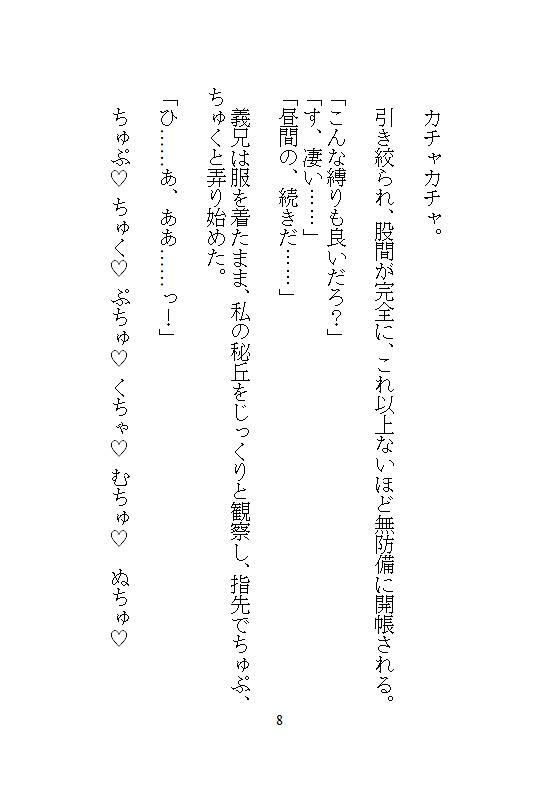 カチャカチャ。
引き絞られ、股間が完全に、これ以上ないほど無防備に開帳される。
「こんな縛りも良いだろ？」
「す、凄い……」
「昼間の、続きだ……」
義兄は服を着たまま、私の秘丘をじっくりと観察し、指先でちゅぷ、
ちゅくと弄り始めた。
「ひ……あ、ああ……っー」
ちゅぷ♡ ちゅく♡ ぷちゅ♡ くちゃ♡ むちゅ♡ ぬちゅ♡
8